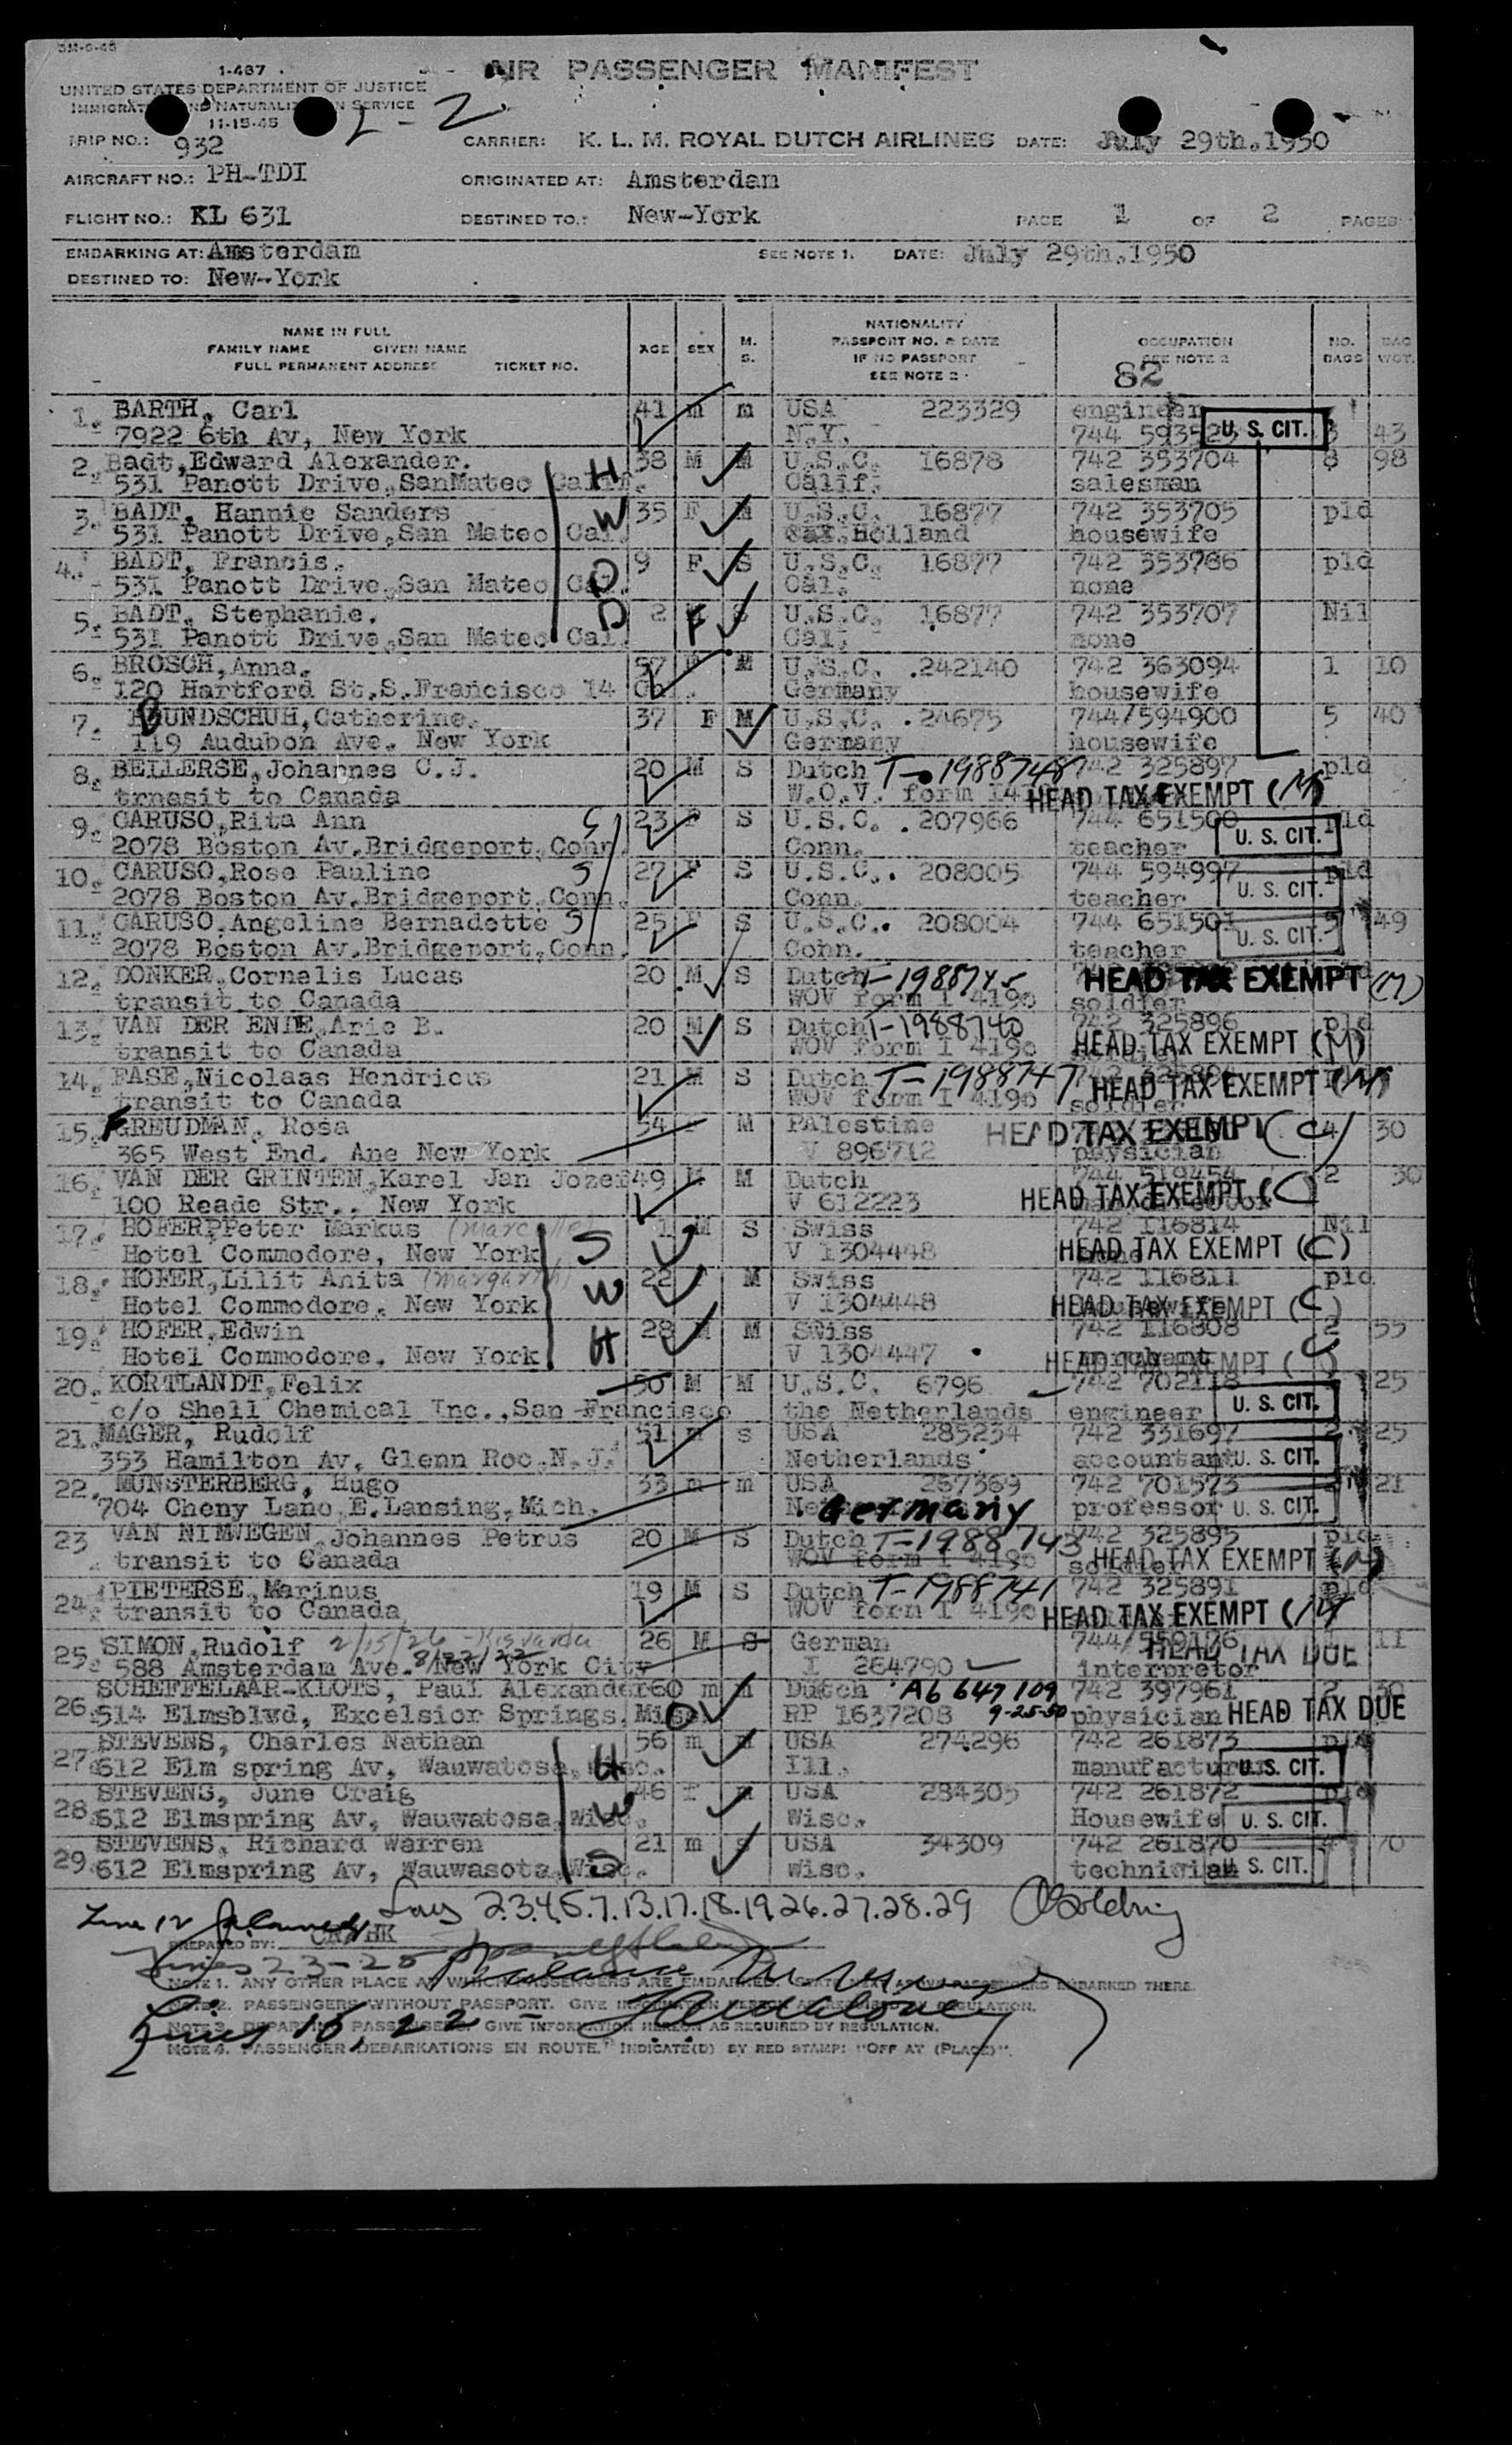 SM-6-48
1-467
UNITED STATES DEPARTMENT OF JUSTICE
AIR PASSENGER MANIFEST
SERVICE
11-15-45
L-2
TRIP NO.: 932
CARRIER: K. L. M. ROYAL DUTCH AIRLINES DATE: July 29th.1950
AIRCRAFT NO.: PH-TDI ORIGINATED AT: Amsterdam
FLIGHT NO.: KL 631 DESTINED TO.: New-York PAGE 1 OF 2 PAGES
EMBARKING AT: Amsterdam SEE NOTE 1. DATE: July 29th.1950
DESTINED TO: New-York
NAME IN FULL
FAMILY NAME GIVEN NAME
FULL PERMANENT ADDRESS TICKET NO.
AGE SEX M. S.
NATIONALITY
PASSPORT NO. & DATE
IF NO PASSPORT
SEE NOTE 2
OCCUPATION
SEE NOTE 2
82
NO. BAGS BAG WGT.
1. BARTH, Carl 41 m m USA 223329 engineer
7922 6th Av, New York N.Y. 744 593523 U. S. CIT. 3 43
2. Badt,Edward Alexander. H 38 M M U.S.C. 16878 742 353704 8 98
531 Panott Drive,SanMateo Calif. Calif. salesman
3. BADT, Hannie Sanders W 35 F M U.S.C. 16877 742 353705 pld
531 Panott Drive,San Mateo Cal. Holland housewife
4. BADT, Francis. D 9 F S U.S.C. 16877 742 353706 pld
531 Panott Drive,San Mateo Cal. Cal. none
5. BADT, Stephanie. D 2 F S U.S.C. 16877 742 353707 Nil
531 Panott Drive,San Mateo Cal. Cal. none
6. BROSCH,Anna. 57 F M U.S.C. .242140 742 363094 1 10
120 Hartford St.S.Francisco 14 Cal. Germany housewife
7. BOUNDSCHUH,Catherine. 37 F M U.S.C. .24675 744/594900 5 40
119 Audubon Ave. New York Germany housewife
8. BELLERSE,Johannes C.J. 20 M S Dutch T-1988748 742 325897 pld
trnasit to Canada W.O.V. form HEAD TAX EXEMPT (M)
9. CARUSO,Rita Ann S 23 F S U.S.C. .207966 744 651500 pld
2078 Boston Av.Bridgeport,Conn. Conn. teacher U. S. CIT.
10. CARUSO,Rose Pauline S 27 F S U.S.C.. 208005 744 594997 pld
2078 Boston Av.Bridgeport,Conn. Conn. teacher U. S. CIT.
11. CARUSO,Angeline Bernadette S 25 F S U.S.C.. 208004 744 651501 49
2078 Boston Av.Bridgeport,Conn. Conn. teacher U. S. CIT.
12. DONKER,Cornelis Lucas 20 M S Dutch T-1988745 HEAD TAX EXEMPT (M)
transit to Canada WOV form I 419b soldier
13. VAN DER ENDE,Arie B. 20 M S Dutch T-1988740 742 325896 pld
transit to Canada WOV form I 419b HEAD TAX EXEMPT (M)
14. FASE,Nicolaas Hendricus 21 M S Dutch T-1988747 HEAD TAX EXEMPT (M)
transit to Canada WOV form I 419b soldier
15. FREUDMAN, Rosa 54 F M PAlestine HEAD TAX EXEMPT (C) 4 30
365 West End. Ane New York V 896712 physician
16. VAN DER GRINTEN,Karel Jan Jozef 49 M M Dutch 744 519454 2 30
100 Reade Str., New York V 612223 HEAD TAX EXEMPT (C)
17. HOFER,Peter Markus S 1 M S Swiss 742 116814 Nil
Hotel Commodore, New York V 1304448 HEAD TAX EXEMPT (C)
18. HOFER,Lilit Anita W 22 M Swiss 742 116811 pld
Hotel Commodore, New York V 1304448 HEAD TAX EXEMPT (C)
19. HOFER,Edwin H 28 M M SWiss 742 116808 2 55
Hotel Commodore, New York V 1304447 merchant HEAD TAX EXEMPT (C)
20. KORTLANDT,Felix 50 M M U.S.C. 6796 742 702118 25
c/o Shell Chemical Inc.,San Francisco the Netherlands engineer U. S. CIT.
21. MAGER, Rudolf 51 m s USA 285234 742 331697 2 25
353 Hamilton Av, Glenn Roc.N.J. Netherlands accountant U. S. CIT.
22. MUNSTERBERG, Hugo 33 m m USA 257369 742 701573 21
704 Cheny Lane,E.Lansing,Mich. Germany professor U. S. CIT.
23 VAN NIMWEGEN,Johannes Petrus 20 M S Dutch T-1988743 742 325895 pld
transit to Canada WOV form I 419b soldier HEAD TAX EXEMPT (M)
24. PIETERSE,Marinus 19 M S Dutch T-1988741 742 325891 pld
transit to Canada WOV form I 419b HEAD TAX EXEMPT (M)
25. SIMON,Rudolf 2/15/26 26 M S German 744/559176 11
588 Amsterdam Ave. New York City I 264790 interpretor HEAD TAX DUE
26. SCHEFFELAAR-KLOTS, Paul Alexander 60 m m Dutch A6 647 109 742 397961 2 30
514 Elmsblvd, Excelsior Springs, RP 1637208 9-25-50 physician HEAD TAX DUE
27. STEVENS, Charles Nathan H 56 m m USA 274296 742 261873 pld
612 Elm spring Av, Wauwatosa, Ill. U. S. CIT.
28. STEVENS, June Craig W 46 f m USA 284305 742 261872 pld
612 Elmspring Av, Wauwatosa,Wisc. Wisc. Housewife U. S. CIT.
29. STEVENS, Richard Warren S 21 m s USA 34309 742 261870 4 70
612 Elmspring Av, Wauwasota,Wisc. wisc. U. S. CIT.
Lines 2.3.4.5.7.13.17.18.19.26.27.28.29
Line 12
PREPARED BY:
Lines 23-25
NOTE 1. ANY OTHER PLACE AT WHICH PASSENGERS ARE EMBARKED. EMBARKED THERE.
NOTE 2. PASSENGERS WITHOUT PASSPORT. GIVE INFORMATION REGULATION.
NOTE 3. GIVE INFORMATION HEREON AS REQUIRED BY REGULATION.
Lines 16, 22 -
NOTE 4. PASSENGER DEBARKATIONS EN ROUTE. INDICATE(D) BY RED STAMP: "OFF AT (PLACE)".